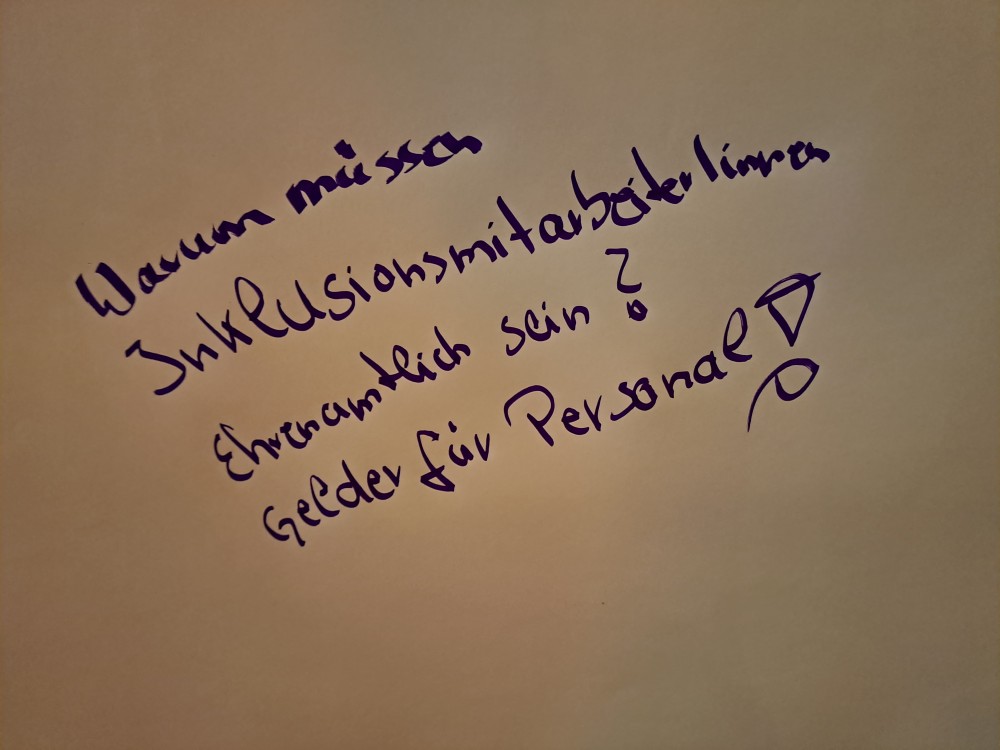 Warum müssen
Inklusionsmitarbeiter/innen
Ehrenamtlich sein?
Gelder für Personal!